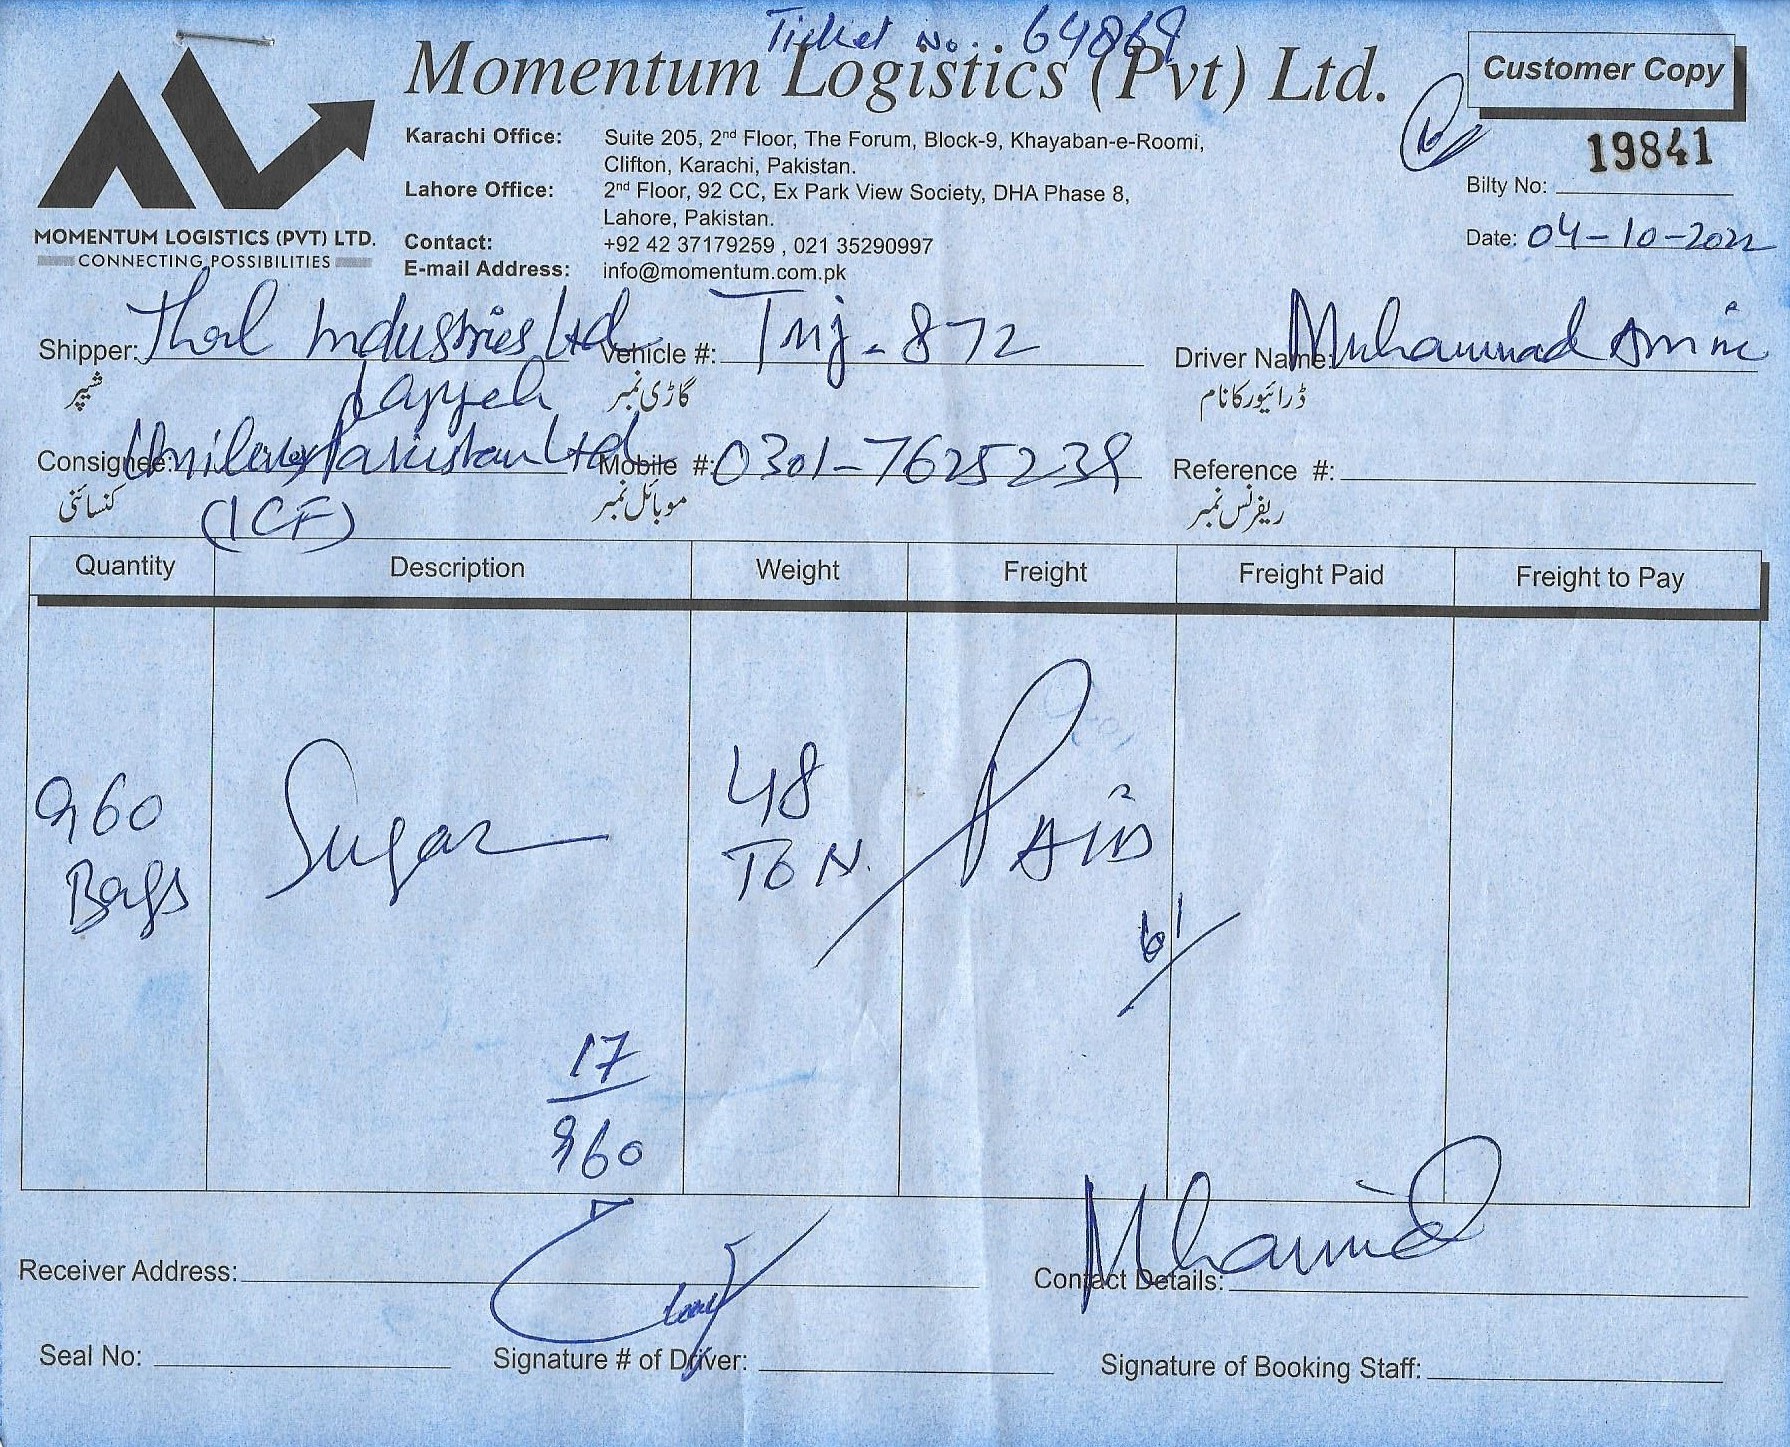 Ticket No. 64869
Momentum Logistics (Pvt) Ltd.
Customer Copy
MOMENTUM LOGISTICS (PVT) LTD.
CONNECTING POSSIBILITIES
Karachi Office: Suite 205, 2nd Floor, The Forum, Block-9, Khayaban-e-Roomi,
Clifton, Karachi, Pakistan.
Lahore Office: 2nd Floor, 92 CC, Ex Park View Society, DHA Phase 8,
Lahore, Pakistan.
Contact: +92 42 37179259 , 021 35290997
E-mail Address: info@momentum.com.pk
Bilty No: 19841
Date: 04-10-2022
Shipper: Thal Industries Ltd Vehicle #: TMJ-872 Driver Name: Muhammad Amin
شیپر گاڑی نمبر ڈرائیور کا نام
Layyah
Consignee: Unilever Pakistan Ltd Mobile #: 0301-7625239 Reference #:
کنسائنی موبائل نمبر ریفرنس نمبر
(ICF)
Quantity Description Weight Freight Freight Paid Freight to Pay
960 Bags Sugar 48 TON. PAID
61
17
960
Receiver Address: Contact Details:
Seal No: Signature # of Driver: Signature of Booking Staff: